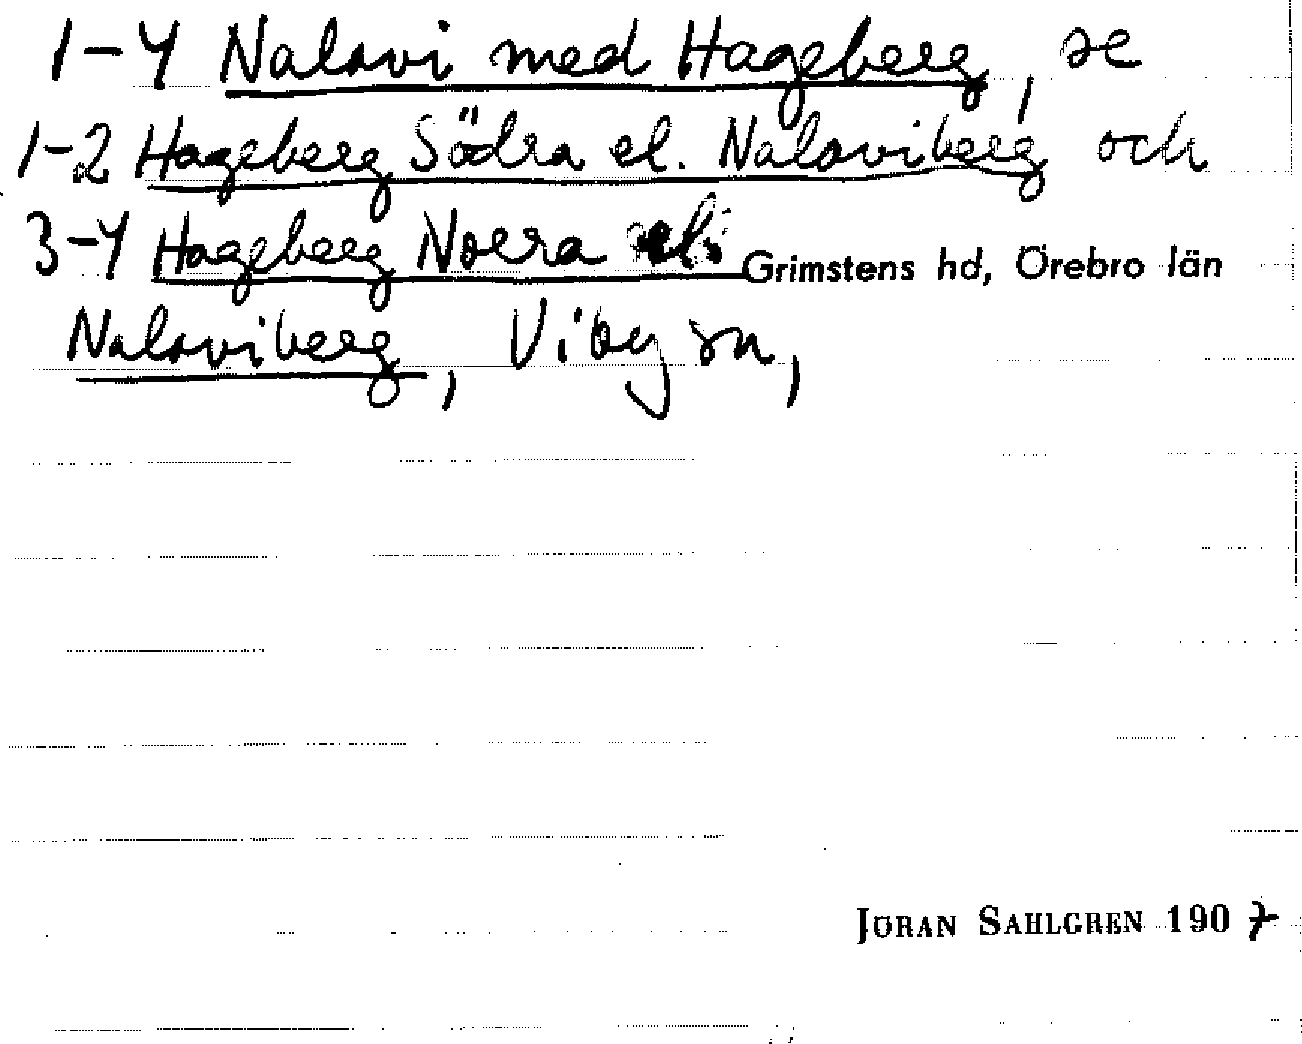 1-4 Nalavi med Hageberg, se
1-2 Hageberg Södra el. Nalaviberg och
3-4 Hageberg Norra el. Grimstens hd, Örebro län
Nalaviberg, Viby sn,
JÖRAN SAHLGREN 1907